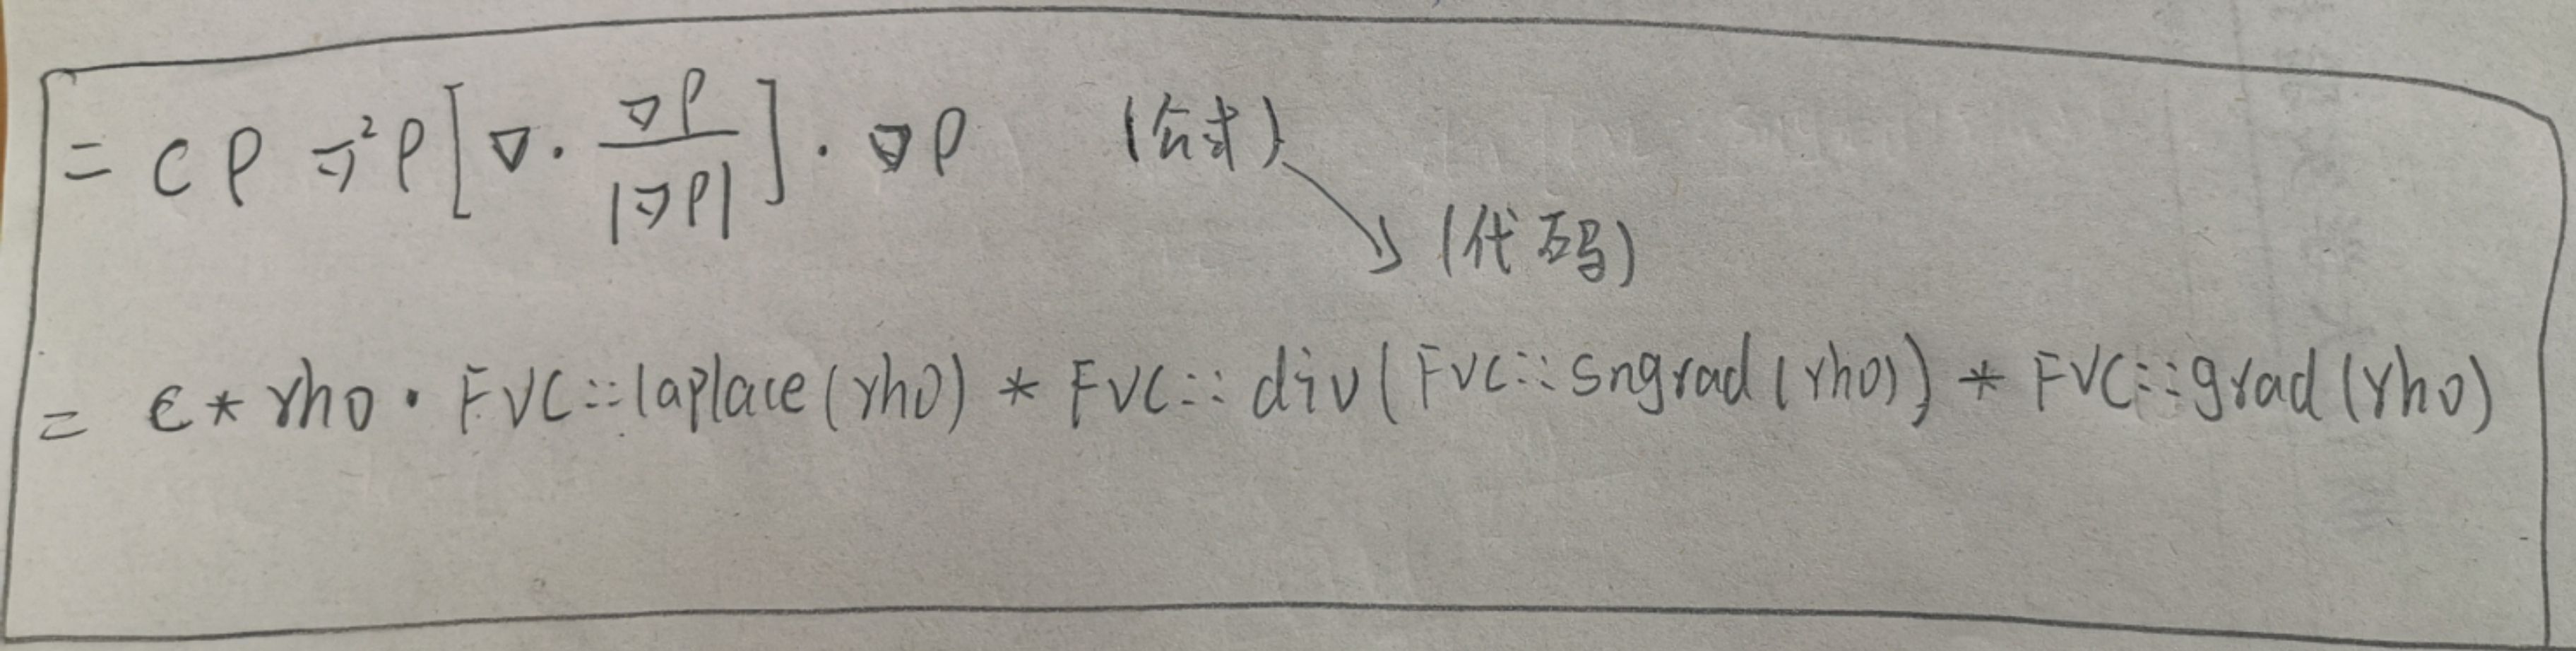 = C ρ ∇²ρ [∇ · ∇ρ / |∇ρ|] · ∇ρ (公式)
(代码)
= c * rho · FVC::laplace(rho) * FVC::div(FVC::sngrad(rho)) * FVC::grad(rho)